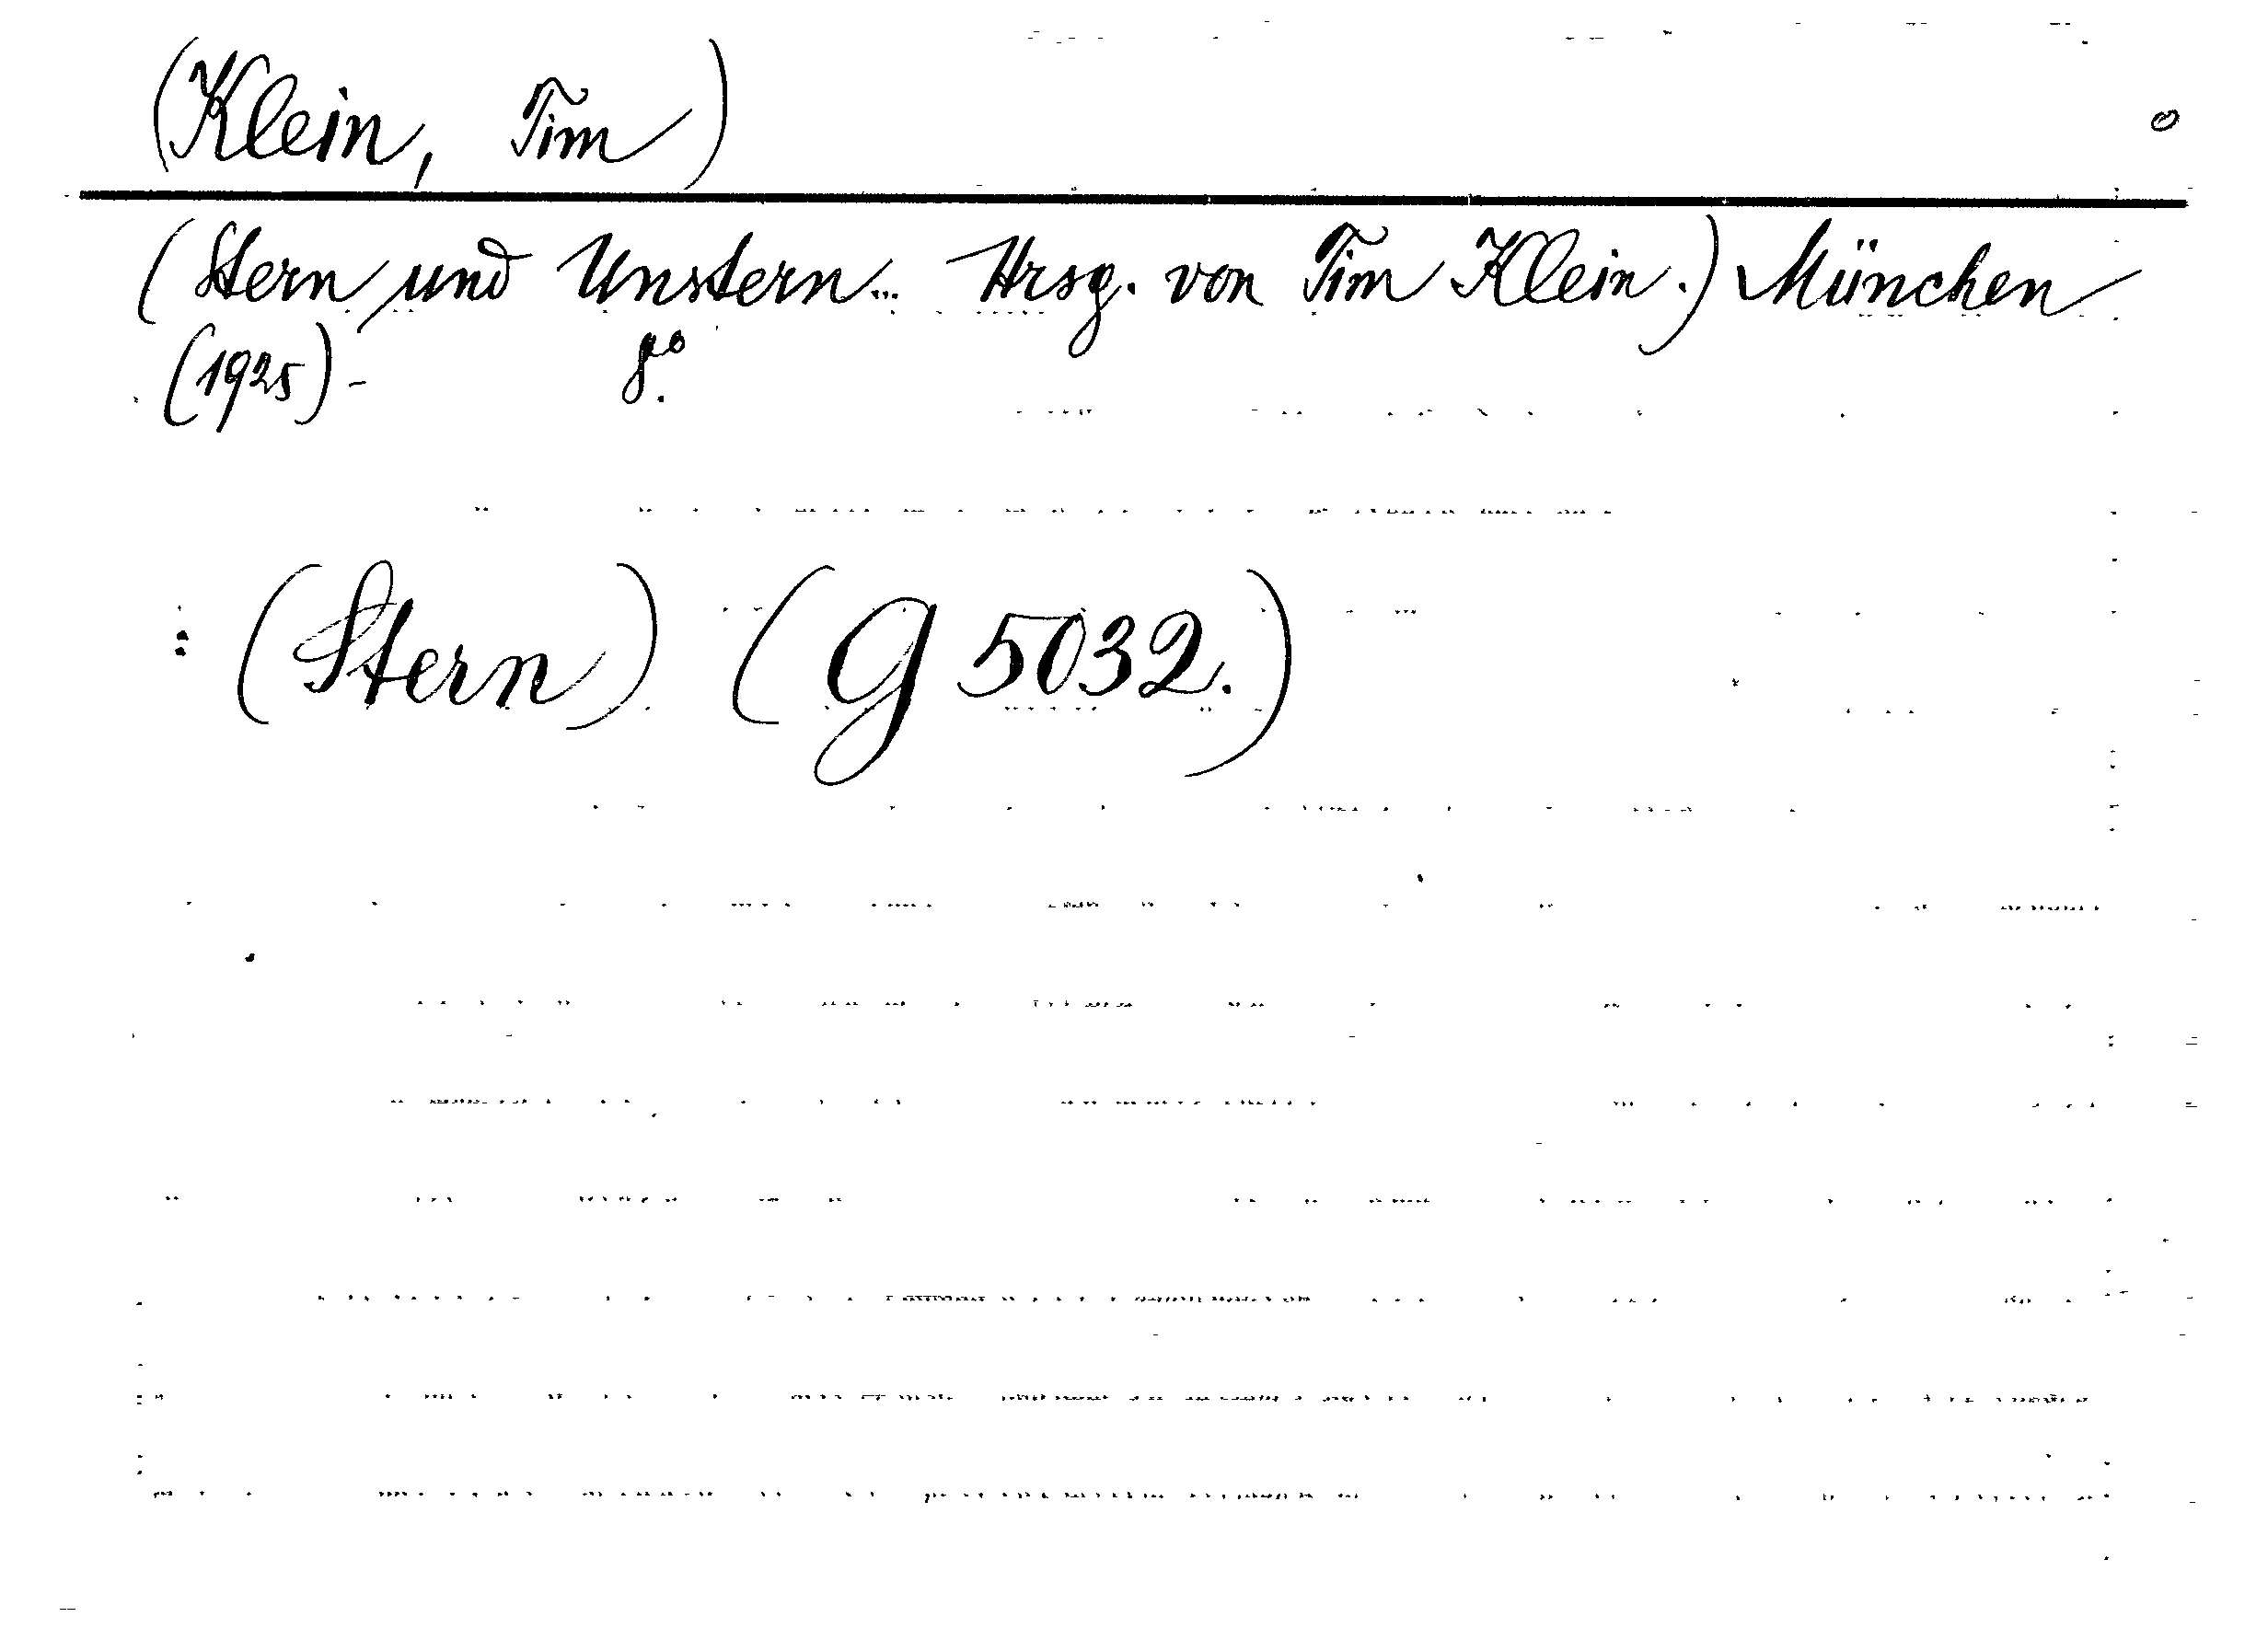 (Klein, Tim) o
(Stern und Unstern... Hrsg. von Tim Klein.) München
(1925)- 8°.
: (Stern) (G 5032.)